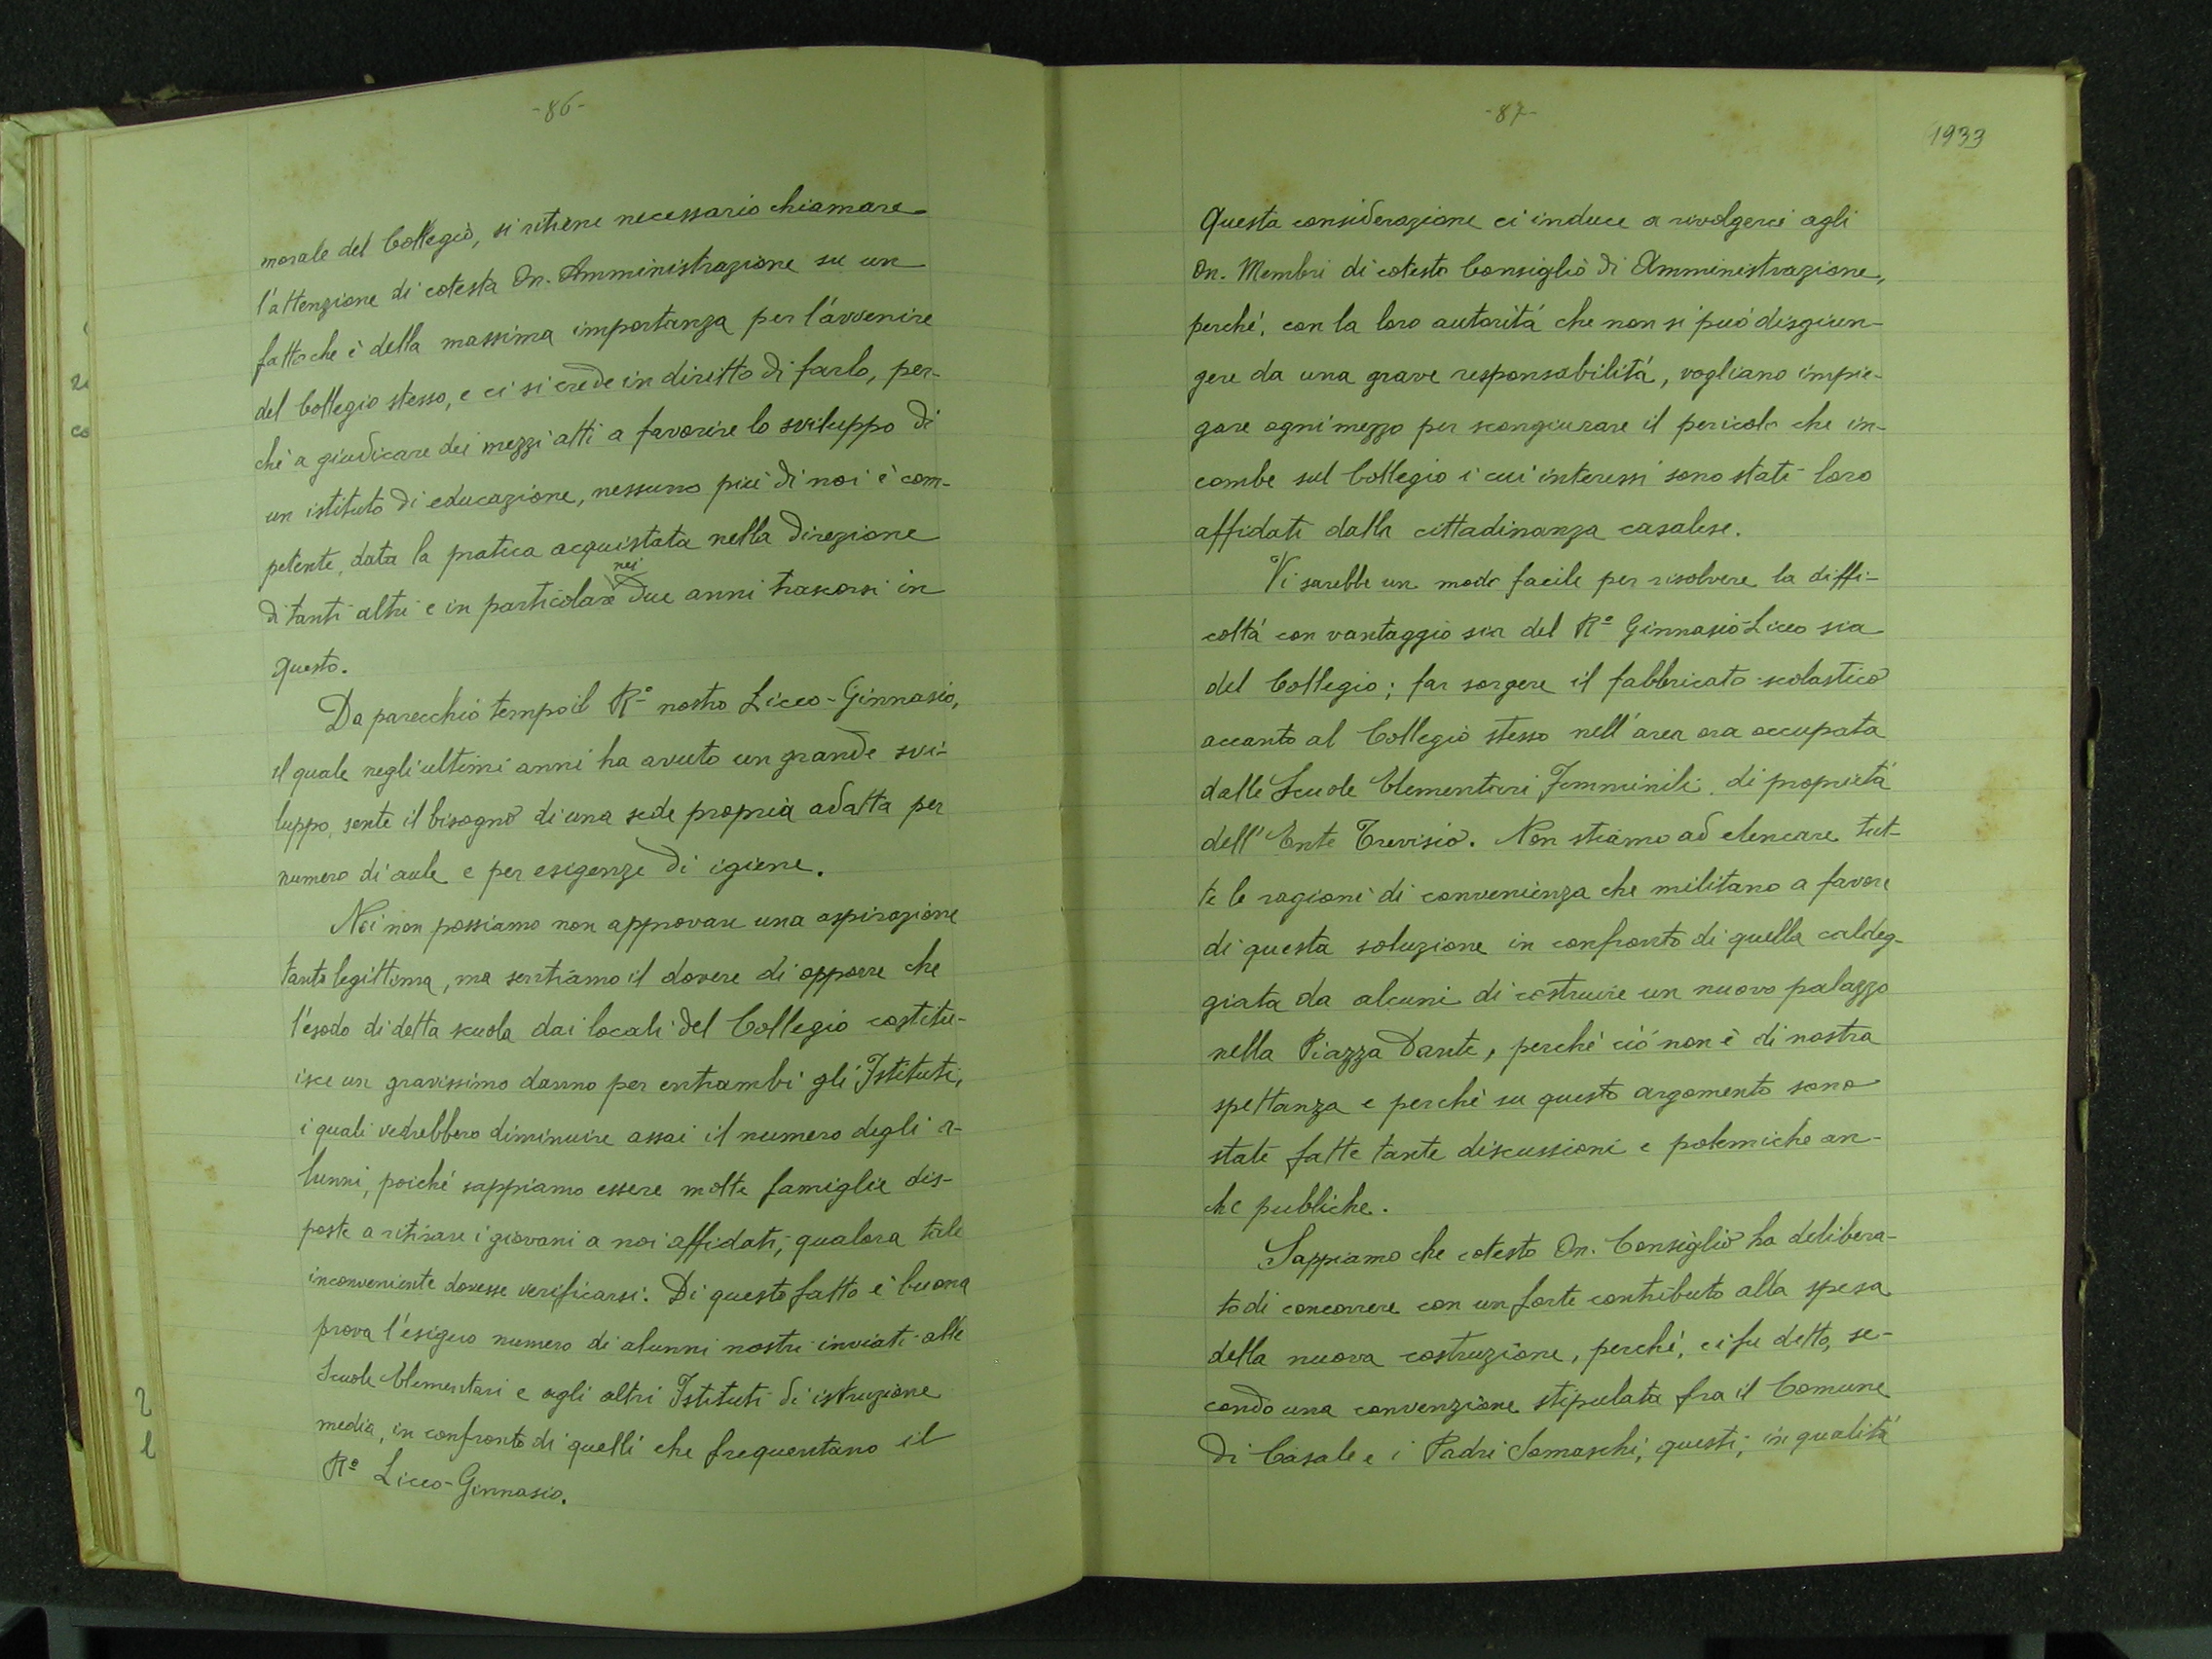 -86-
morale del Collegio, si ritiene necessario chiamare
l'attenzione di cotesta On. Amministrazione su un
fatto che è della massima importanza per l'avvenire
del Collegio stesso, e ci si crede in diritto di farlo, per-
chè a giudicare dei mezzi atti a favorire lo sviluppo di
un istituto di educazione, nessuno più di noi è com-
petente, data la pratica acquistata nella direzione
nei
di tanti altri e in particolare due anni trascorsi in
questo.
Da parecchio tempo il R.º nostro Liceo-Ginnasio,
il quale negli ultimi anni ha avuto un grande svi-
luppo, sente il bisogno di una sede propria adatta per
numero di aule e per esigenze di igiene.
Noi non possiamo non approvare una aspirazione
tanto legittima, ma sentiamo il dovere di opporre che
l'esodo di detta scuola dai locali del Collegio costitu-
isce un gravissimo danno per entrambi gli Istituti,
i quali vedrebbero diminuire assai il numero degli a-
lunni, poiché sappiamo essere molte famiglie dis-
poste a ritirare i giovani a noi affidati, qualora tale
inconveniente dovesse verificarsi. Di questo fatto è buona
prova l'esiguo numero di alunni nostri inviati alle
Scuole Elementari e agli altri Istituti di istruzione
media, in confronto di quelli che frequentano il
R.º Liceo-Ginnasio.
-87-
1933
Questa considerazione ci induce a rivolgerci agli
On. Membri di cotesto Consiglio di Amministrazione,
perché, con la loro autorità che non si può disgiun-
gere da una grave responsabilità, vogliano impie-
gare ogni mezzo per scongiurare il pericolo che in-
combe sul Collegio i cui interessi sono stati loro
affidati dalla cittadinanza casalese.
Vi sarebbe un modo facile per risolvere la diffi-
coltà con vantaggio sia del R.º Ginnasio-Liceo sia
del Collegio; far sorgere il fabbricato scolastico
accanto al Collegio stesso nell'area ora occupata
dalle Scuole Elementari Femminili, di proprietà
dell'Ente Trevisio. Non stiamo ad elencare tut-
te le ragioni di convenienza che militano a favore
di questa soluzione in confronto di quella caldeg-
giata da alcuni di costruire un nuovo palazzo
nella Piazza Dante, perché ciò non è di nostra
spettanza e perché su questo argomento sono
state fatte tante discussioni e polemiche an-
che publiche.
Sappiamo che cotesto On. Consiglio ha delibera-
to di concorrere con un forte contributo alla spesa
della nuova costruzione, perché, ci fu detto, se-
condo una convenzione stipulata fra il Comune
di Casale e i Padri Somaschi, questi, in qualità